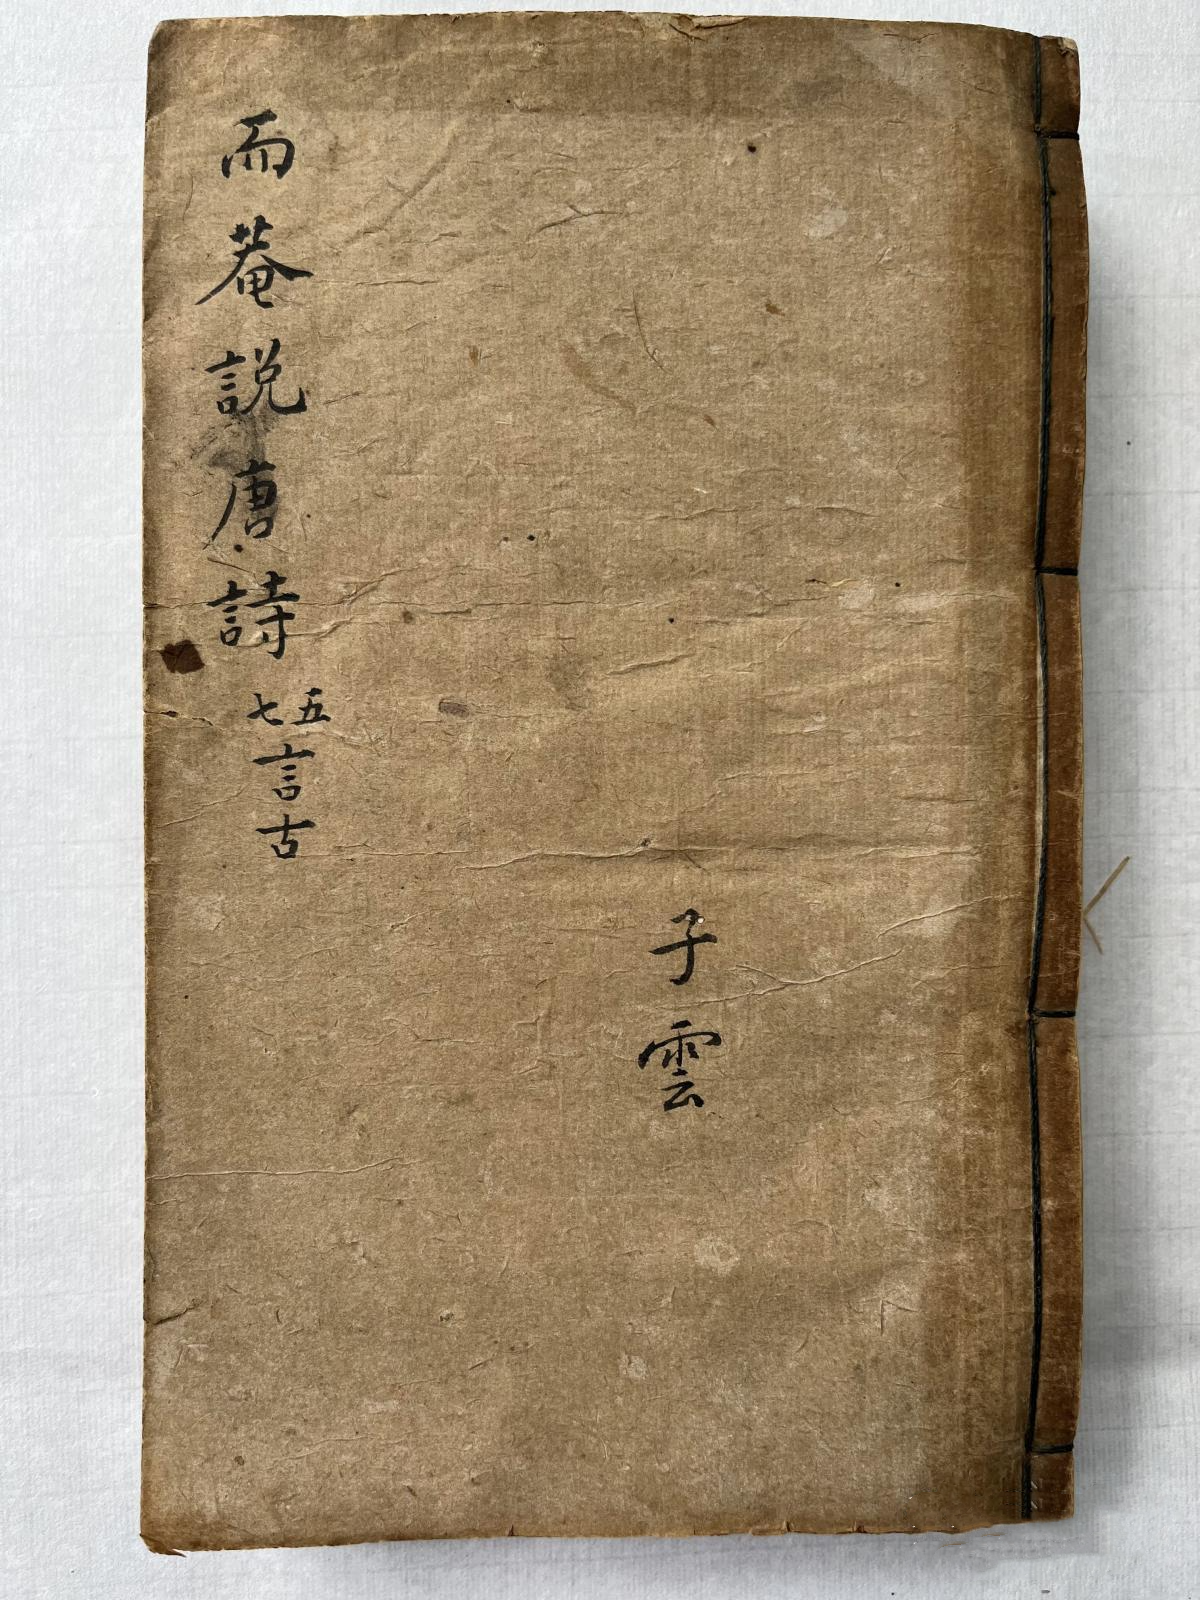 子雲
而菴説唐詩
五七言古